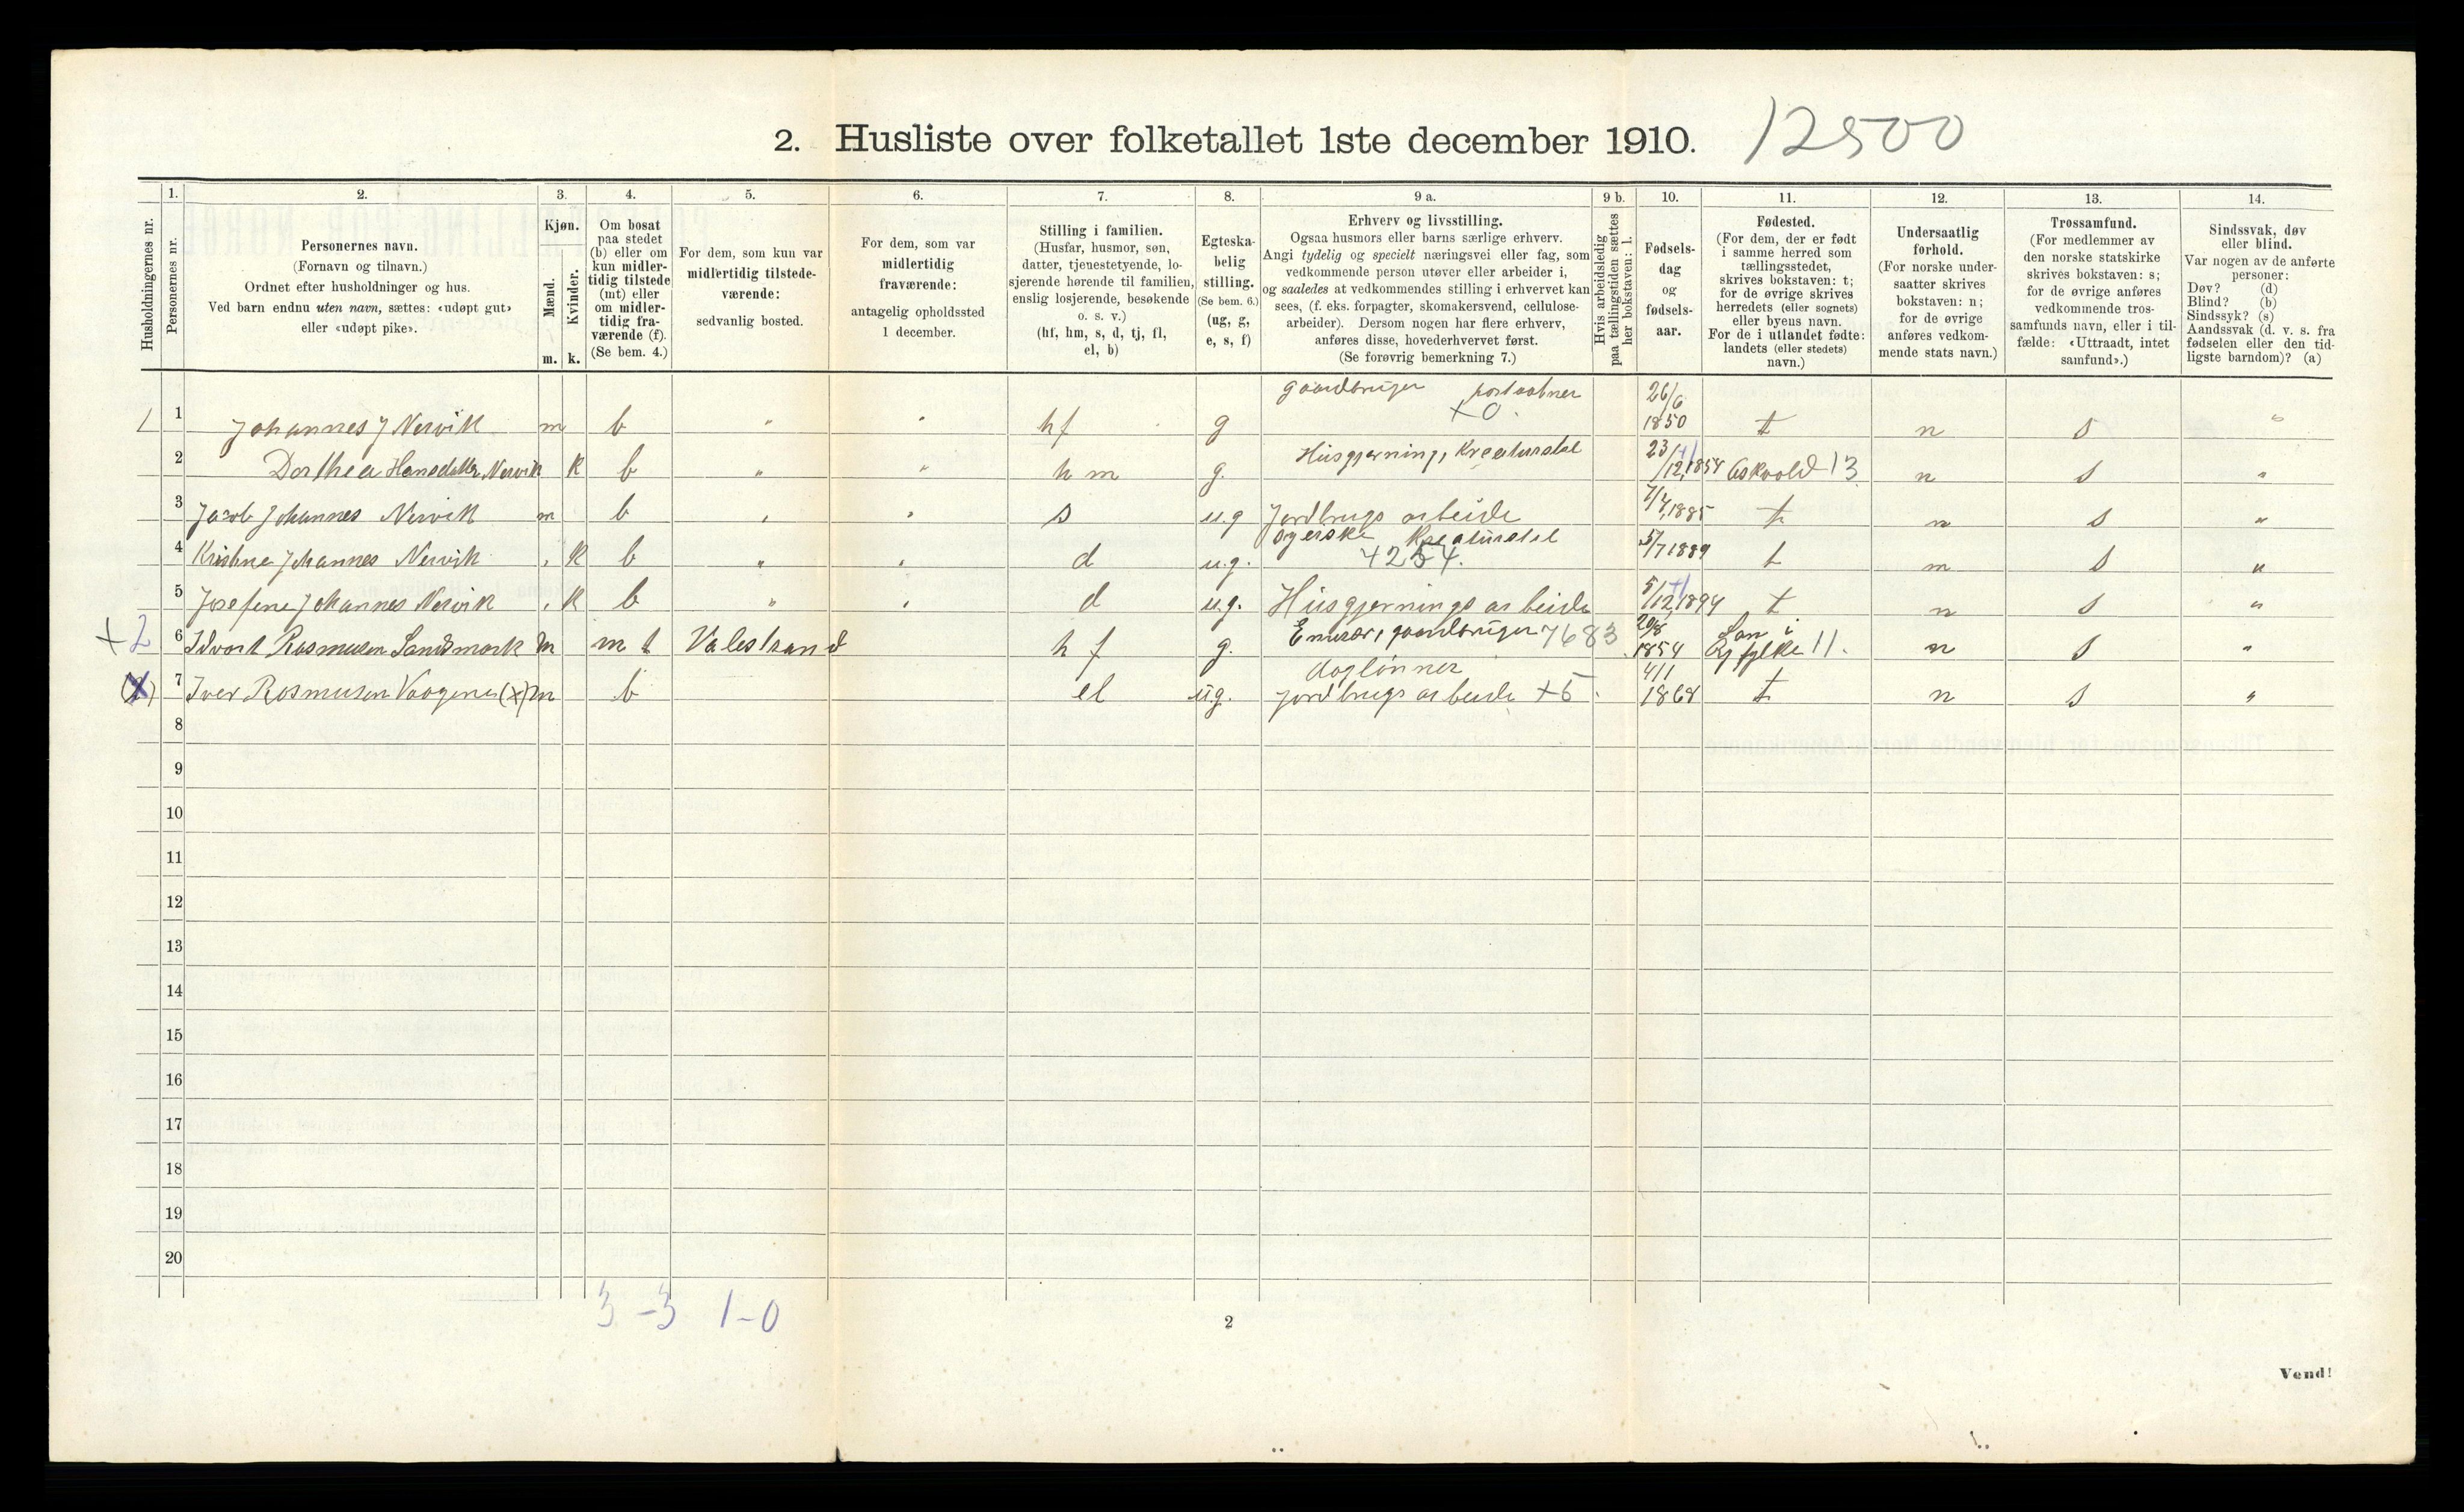 2. Husliste over folketallet 1ste december 1910. 12500
Husholdningernes nr.
1. Personernes nr.
2. Personernes navn.
(Fornavn og tilnavn.)
Ordnet efter husholdninger og hus.
Ved barn endnu uten navn, sættes: «udøpt gut»
eller «udøpt pike».
3. Kjøn.
Mænd. m.
Kvinder. k.
4. Om bosat
paa stedet
(b) eller om
kun midler-
tidig tilstede
(mt) eller
om midler-
tidig fra-
værende (f).
(Se bem. 4.)
5. For dem, som kun var
midlertidig tilstede-
værende:
sedvanlig bosted.
6. For dem, som var
midlertidig
fraværende:
antagelig opholdssted
1 december.
7. Stilling i familien.
(Husfar, husmor, søn,
datter, tjenestetyende, lo-
sjerende hørende til familien,
enslig losjerende, besøkende
o. s. v.)
(hf, hm, s, d, tj, fl,
el, b)
8. Egteska-
belig
stilling.
(Se bem. 6.)
(ug, g,
e, s, f)
9 a. Erhverv og livsstilling.
Ogsaa husmors eller barns særlige erhverv.
Angi tydelig og specielt næringsvei eller fag, som
vedkommende person utøver eller arbeider i,
og saaledes at vedkommendes stilling i erhvervet kan
sees, (f. eks. forpagter, skomakersvend, cellulose-
arbeider). Dersom nogen har flere erhverv,
anføres disse, hovederhvervet først.
(Se forøvrig bemerkning 7.)
9 b. Hvis arbeidsledig
paa tællingstiden sættes
her bokstaven: l.
10. Fødsels-
dag
og
fødsels-
aar.
11. Fødested.
(For dem, der er født
i samme herred som
tællingsstedet,
skrives bokstaven: t;
for de øvrige skrives
herredets (eller sognets)
eller byens navn.
For de i utlandet fødte:
landets (eller stedets)
navn.)
12. Undersaatlig
forhold.
(For norske under-
saatter skrives
bokstaven: n;
for de øvrige
anføres vedkom-
mende stats navn.)
13. Trossamfund.
(For medlemmer av
den norske statskirke
skrives bokstaven: s;
for de øvrige anføres
vedkommende tros-
samfunds navn, eller i til-
fælde: «Uttraadt, intet
samfund».)
14. Sindssvak, døv
eller blind.
Var nogen av de anførte
personer:
Døv? (d)
Blind? (b)
Sindssyk? (s)
Aandssvak (d. v. s. fra
fødselen eller den tid-
ligste barndom)? (a)
gaardbruger postaabner
1 1 Johannes J Nervik m b " " hf g +0. 26/6 1850 t n s "
2 Dorthea Hansdatter Nervik k b " " hm g. Husgjerning, Kreaturstel 23/12 1854 Askvold 13 n s "
3 Jacob Johannes Nervik m b " " s u.g Jordbrugs arbeide 7/4, 1885 t n s "
4 Kristine Johannes Nervik k b " " d u.g. Kreaturstel 4254. 5/7 1889 t n s "
5 Josefine Johannes Nervik k b " " d u.g. Husgjernings arbeide 5/12 1894 t n s "
+2 6 Idvart Rasmusen Sandsmark m mt Valestrand hf g. gaardbruger 7683 20/8 1854 San i Ryfylke 11. n s "
7 Iver Rasmusen Vaagenes (x) m b el ug. daglønner jordbrugs arbeide +5. 4/1 1868 t n s "
8
9
10
11
12
13
14
15
16
17
18
19
20
3-3 1-0
2
Vend!